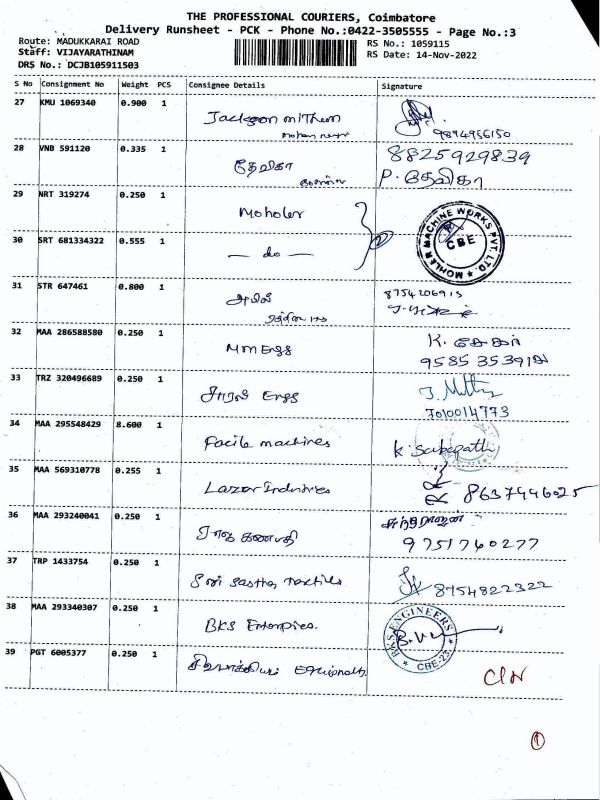 THE PROFESSIONAL COURIERS, Coimbatore
Delivery Runsheet - PCK - Phone No.:0422-3505555 - Page No.:3
Route: MADUKKARAI ROAD RS No.: 1059115
Staff: VIJAYARATHINAM RS Date: 14-Nov-2022
DRS No.: DCJB105911503
S No Consignment No Weight PCS Consignee Details Signature
27 KMU 1069340 0.900 1
Jackson
9894956150
28 VNB 591120 0.335 1 8825929839
தேவிகா P. தேவிகா
29 NRT 319274 0.250 1
Moholer
MOHLER MACHINE WORKS PVT. LTD.
CBE
30 SRT 681334322 0.555 1
— do —
31 STR 647461 0.800 1 8754206915
32 MAA 286588580 0.250 1 K. சேகர்
MM Engg
33 TRZ 320496689 0.250 1
Engg 7010014773
34 MAA 295548429 8.600 1
Facile machines K Sabapathi
35 MAA 569310778 0.255 1
Lazor Industries 8637446025
36 MAA 293240041 0.250 1
ராஜ கணபதி 9751740277
37 TRP 1433754 0.250 1
Sri Sastha Textiles 8954822322
38 MAA 293340307 0.250 1
BKS Enterpies.
BKS ENGINEERS
CBE-23
39 PGT 6005377 0.250 1